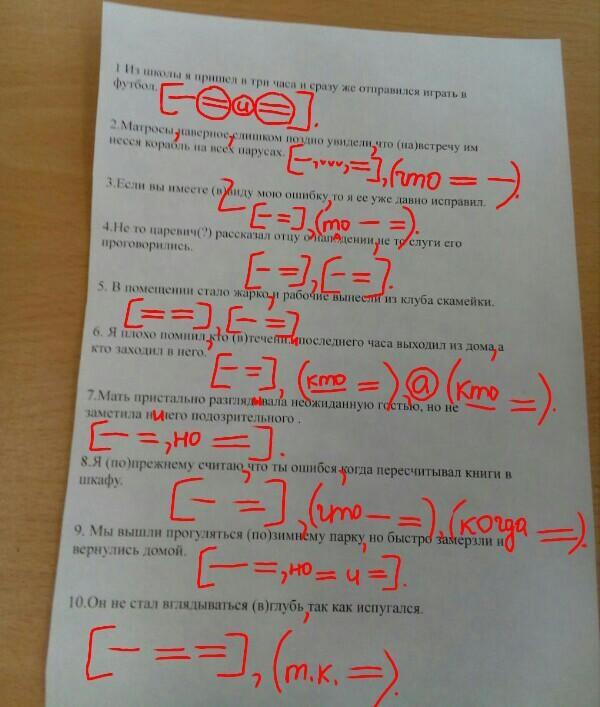 1 Из школы я пришел в три часа и сразу же отправился играть в
футбол. [— = и =].
2.Матросы, наверное, слишком поздно увидели, что (на)встречу им
несся корабль на всех парусах. [—, ~~~, =], (что = —).
3.Если вы имеете (в)виду мою ошибку, то я ее уже давно исправил.
[— =], (то — =).
4.Не то царевич(?) рассказал отцу о нападении, не то слуги его
проговорились.
[— =], [— =].
5. В помещении стало жарко, и рабочие вынесли из клуба скамейки.
[= =], [— =]
6. Я плохо помнил, кто (в)течении последнего часа выходил из дома, а
кто заходил в него.
[— =], (кто =), а (кто =).
7.Мать пристально разглядывала неожиданную гостью, но не
заметила ничего подозрительного .
[— =, но =].
8.Я (по)прежнему считаю, что ты ошибся, когда пересчитывал книги в
шкафу.
[— =], (что — =), (когда =).
9. Мы вышли прогуляться (по)зимнему парку, но быстро замерзли и
вернулись домой.
[— =, но = и =].
10.Он не стал вглядываться (в)глубь, так как испугался.
[— = =], (т.к. =).